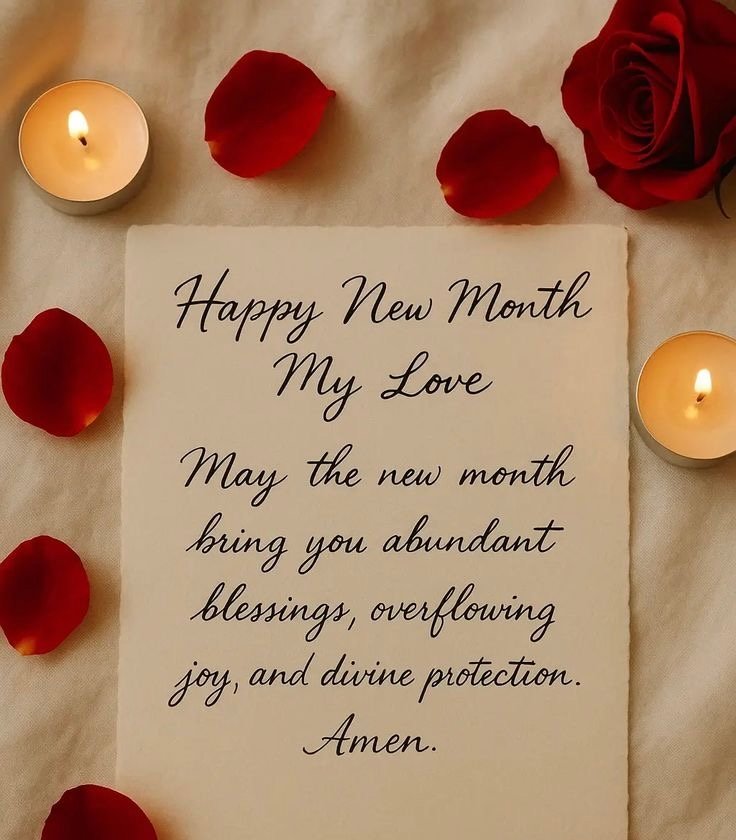 Happy New Month
My Love
May the new month
bring you abundant
blessings, overflowing
joy, and divine protection.
Amen.